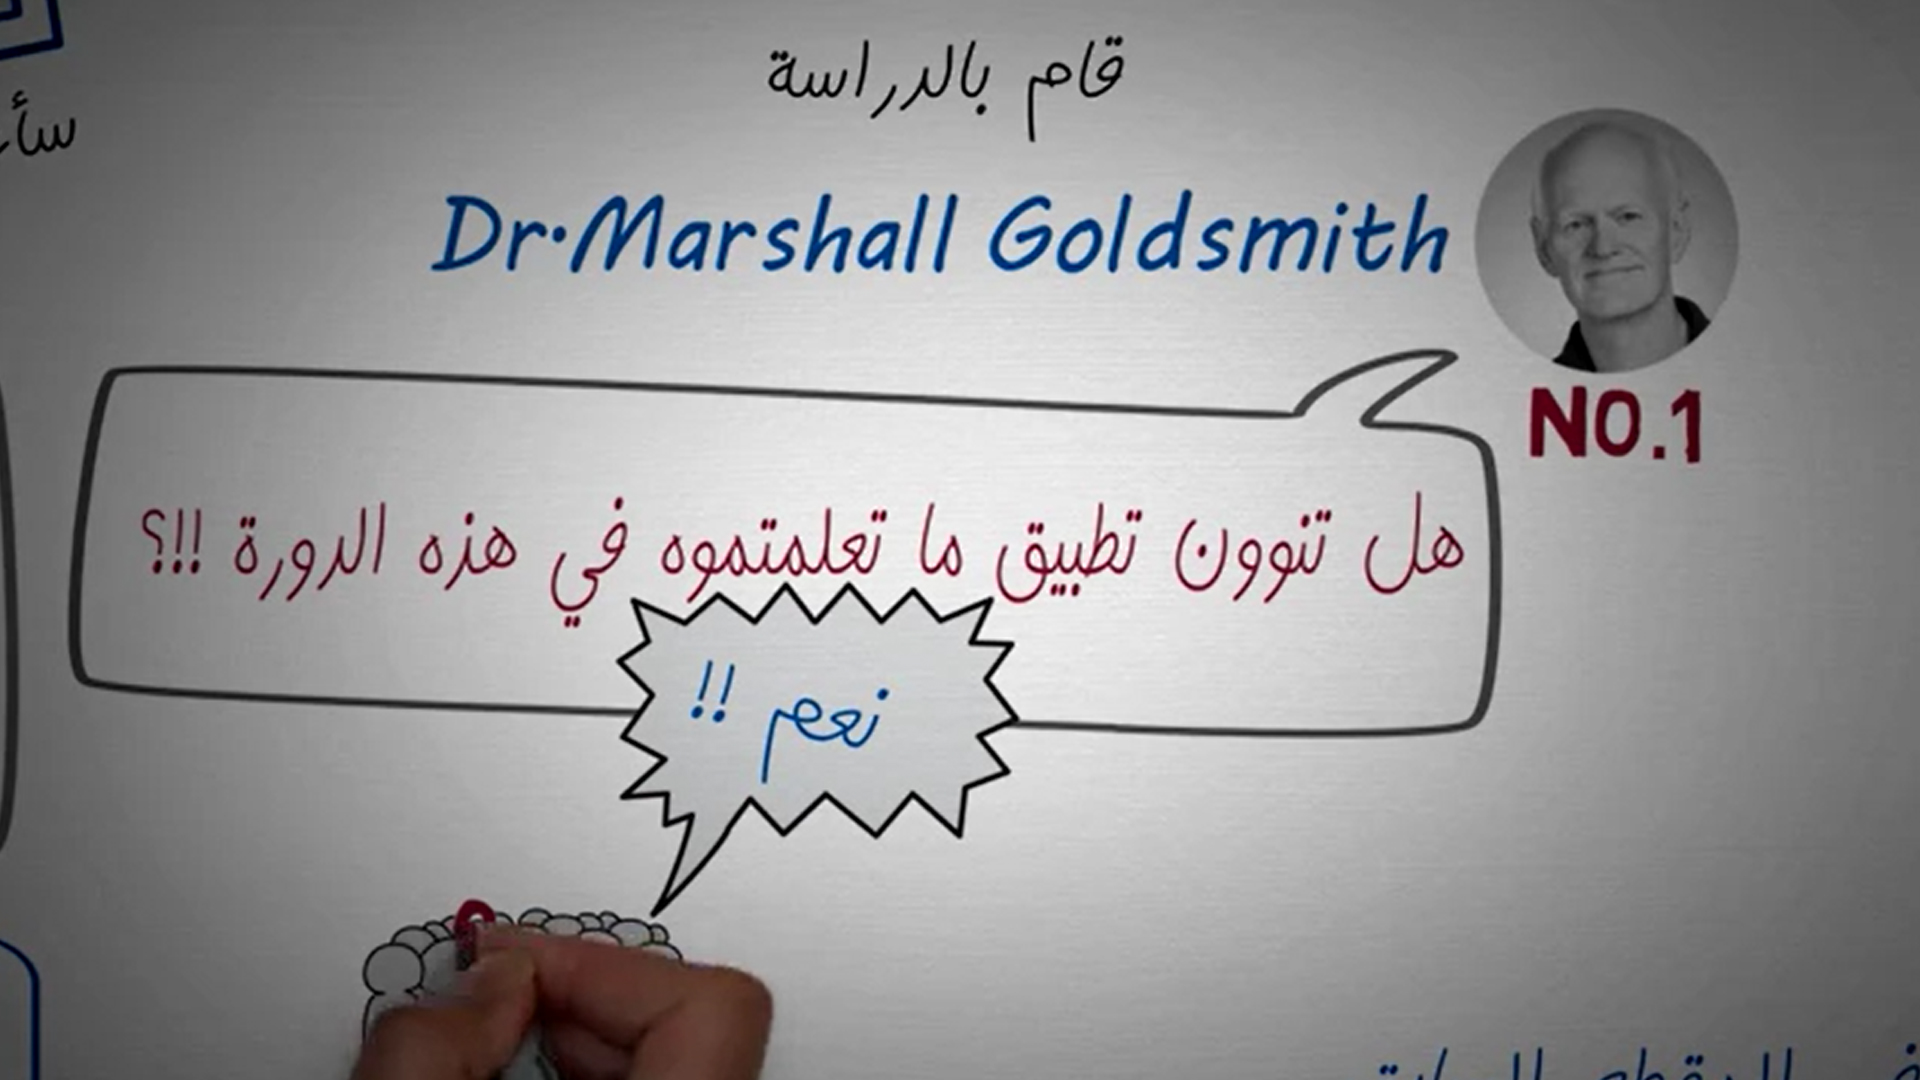 قام بالدراسة
Dr.Marshall Goldsmith
NO.1
هل تنوون تطبيق ما تعلمتموه في هذه الدورة !!؟
نعم !!